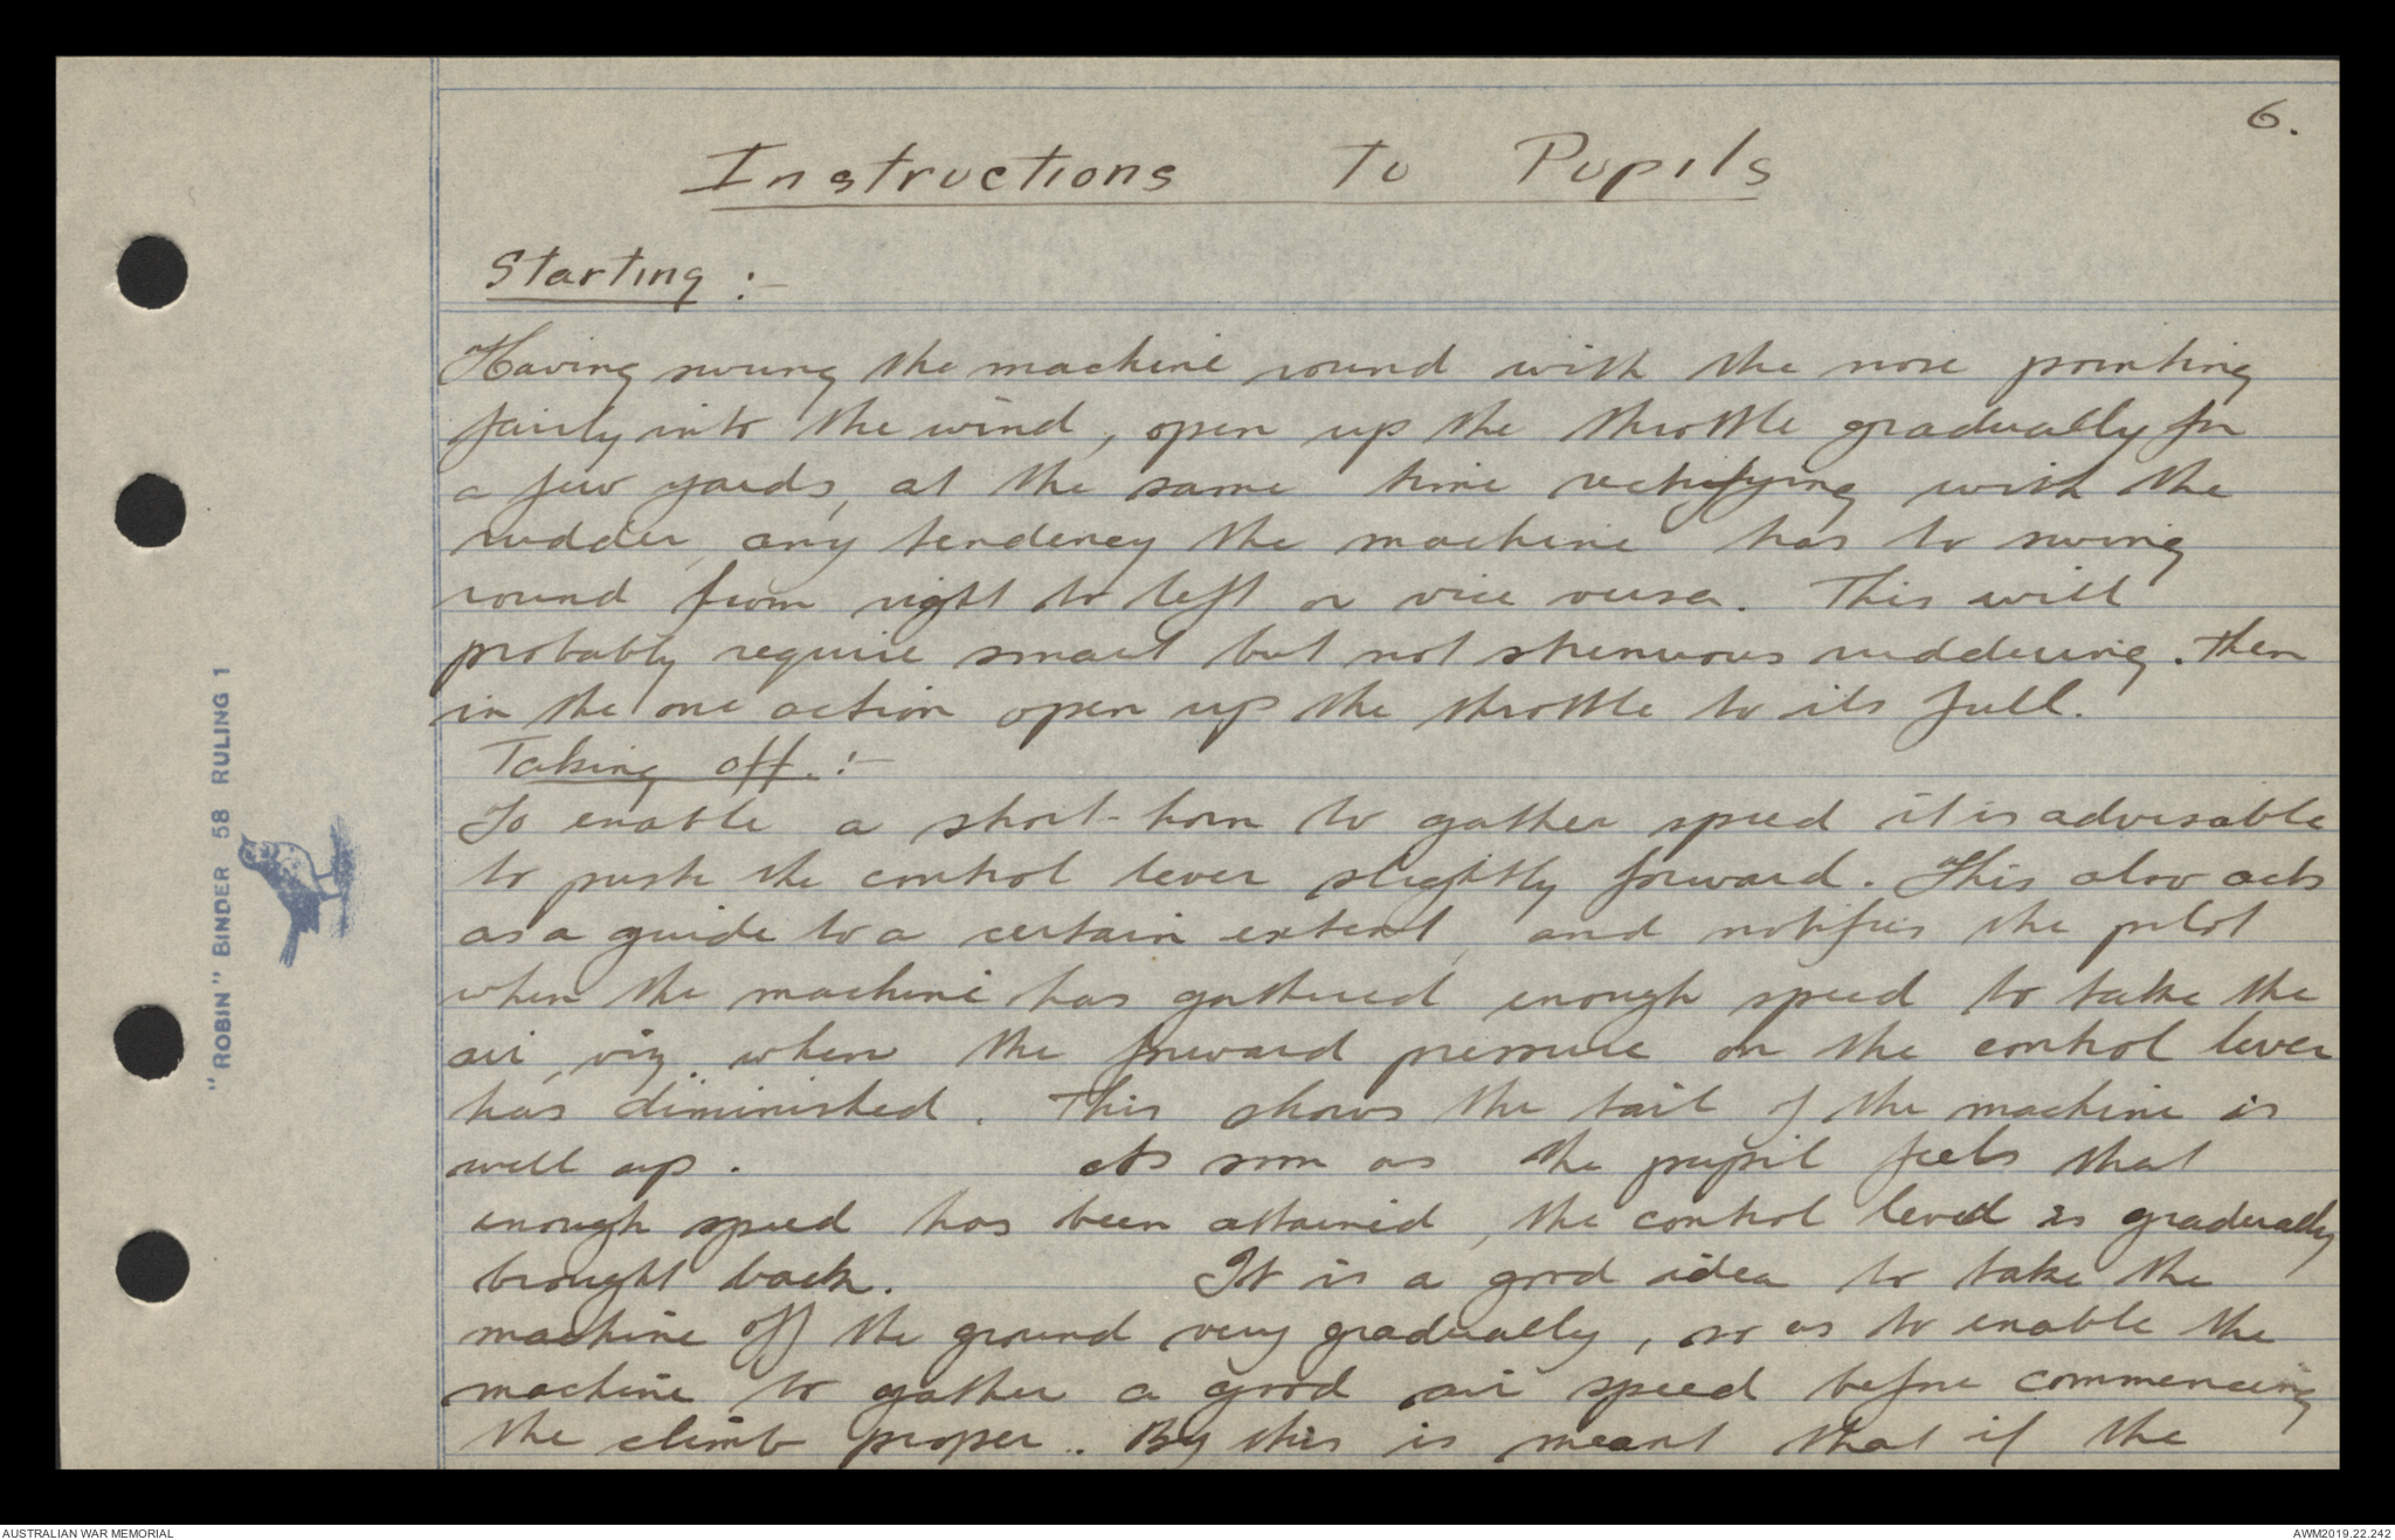 6.
Instructions To Pupils
Starting :-
Having swung the machine round with the nose pointing
fairly into the wind, open up the throttle gradually for
a few yards, at the same time rectifying with the
rudder, any tendency the machine has to swing
round from right to left or vice versa. This will
probably require smart but not strenuous ruddering. Then
in the one action open up the throttle to its full.
Taking off. :-
To enable a short-horn to gather speed it is advisable
to push the control lever slightly forward. This also acts
as a guide to a certain extent, and notifies the pilot
when the machine has gathered enough speed to take the
air, viz, when the forward pressure on the control lever
has diminished. This shows the tail of the machine is
well up. As soon as the pupil feels that
enough speed has been attained, the control level is gradually
brought back. It is a good idea to take the
machine off the ground very gradually, so as to enable the
machine to gather a good air speed before commencing
the climb proper. By this is meant that if the
"ROBIN" BINDER 58 RULING 1
AUSTRALIAN WAR MEMORIAL
AWM2019.22.242